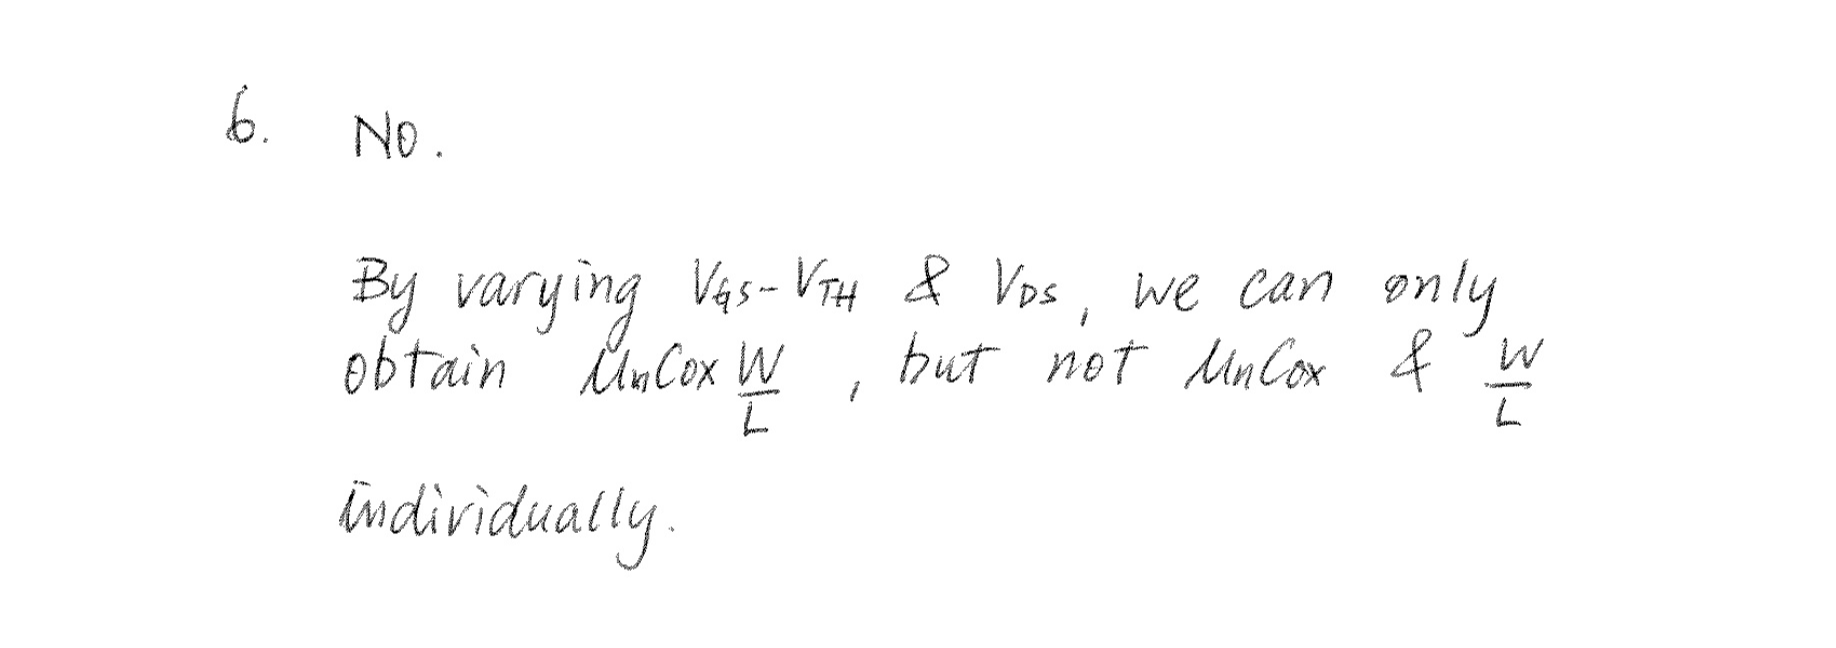 6. No.
By varying VGS-VTH & VDS, we can only
obtain μnCox W/L, but not μnCox & W/L
individually.